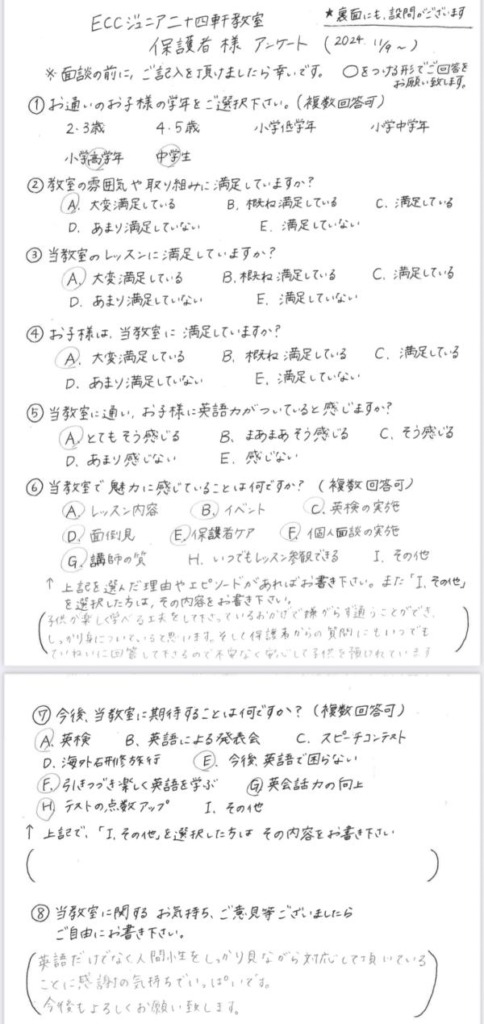 ECCジュニア二十四軒教室
★裏面にも、設問がございます
保護者様 アンケート (2024. 11/9~)
※面談の前に、ご記入を頂けましたら幸いです。 〇をつける形でご回答をお願い致します。
① お通いのお子様の学年をご選択下さい。(複数回答可)
2・3歳 4・5歳 小学低学年 小学中学年
小学高学年 中学生
② 教室の雰囲気や取り組みに満足していますか?
A. 大変満足している B. 概ね満足している C. 満足している
D. あまり満足していない E. 満足していない
③ 当教室のレッスンに満足していますか?
A. 大変満足している B. 概ね満足している C. 満足している
D. あまり満足していない E. 満足していない
④ お子様は、当教室に満足していますか?
A. 大変満足している B. 概ね満足している C. 満足している
D. あまり満足していない E. 満足していない
⑤ 当教室に通い、お子様に英語力がついていると感じますか?
A. とてもそう感じる B. まあまあそう感じる C. そう感じる
D. あまり感じない E. 感じない
⑥ 当教室で魅力に感じていることは何ですか? (複数回答可)
A. レッスン内容 B. イベント C. 英検の実施
D. 面倒見 E. 保護者ケア F. 個人面談の実施
G. 講師の質 H. いつでもレッスン参観できる I. その他
↑ 上記を選んだ理由やエピソードがあればお書き下さい。また「I. その他」
を選択した方は、その内容をお書き下さい。
(子供が楽しく学べる工夫をして下さっているおかげで嫌がらず通うことができ、
しっかり身についていると思います。そして保護者からの質問にもいつでも
ていねいに回答して下さるので不安なく安心して子供を預けれています)
⑦ 今後、当教室に期待することは何ですか? (複数回答可)
A. 英検 B. 英語による発表会 C. スピーチコンテスト
D. 海外研修旅行 E. 今後、英語で困らない
F. 引きつづき楽しく英語を学ぶ G. 英会話力の向上
H. テストの点数アップ I. その他
↑ 上記で、「I. その他」を選択した方は その内容をお書き下さい
( )
⑧ 当教室に関する お気持ち、ご意見等ございましたら
ご自由にお書き下さい。
(英語だけでなく人間性をしっかり見ながら対応して頂いている
ことに感謝の気持ちでいっぱいです。
今後もよろしくお願い致します。)